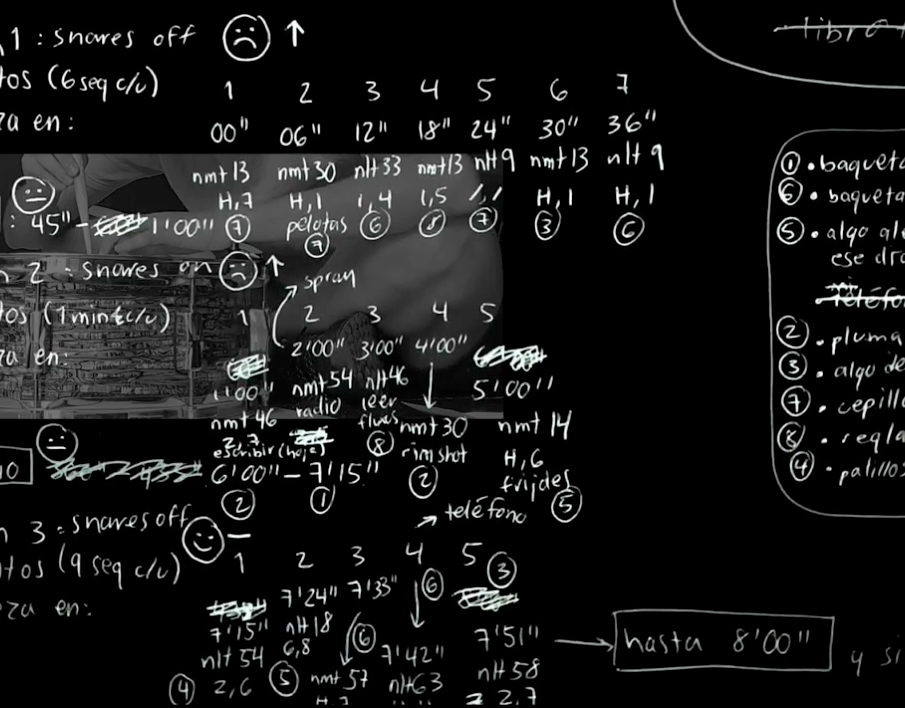 1 : snares off ↑
tos (6 seq c/u)
1 2 3 4 5 6 7
za en:
00" 06" 12" 18" 24" 30" 36"
nmt 13 nmt 30 nlt 33 nmt 13 nlt 9 nmt 13 nlt 9
H,7 H,1 1,4 1,5 1,1 H,1 H,1
: 45" - 1'00" ⑦ pelotas ⑦ ⑥ ⑧ ⑦ ③ ⑥
n 2 : snares on ↑
spray
tos (1 min c/u)
1 2 3 4 5
za en:
1'00" 2'00" 3'00" 4'00" 5'00"
nmt 46 nmt 54 nlt 46 nmt 30 nmt 14
2,7 radio leer rimshot H,6
escribir (hoja) ⑧ ② frijoles
6'00" – 7'15"
② ① ⑤
teléfono
n 3 : snares off –
tos (9 seq c/u)
1 2 3 4 5 ③
za en:
7'15" 7'24" 7'33" ⑥ 7'42" 7'51" → hasta 8'00"
nlt 54 nlt 18 ⑥ nmt 57 nlt 63 nlt 58
④ 2,6 6,8 ⑤ 2,7
y si
libro
① • baqueta
⑥ • baqueta
⑤ • algo
ese
teléfo
② • pluma
③ • algo de
⑦ • cepillo
⑧ • regla
④ • palillos